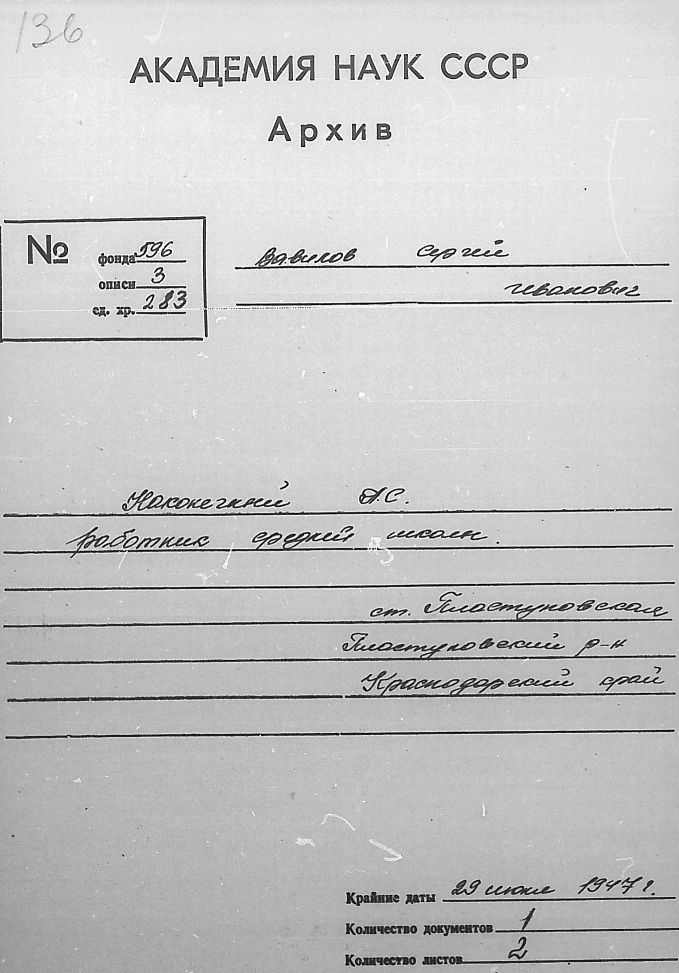 136
АКАДЕМИЯ НАУК СССР
Архив
№
фонда 596
описи 3
ед. хр. 283
Вавилов Сергей
Иванович
Наконечный А.С.
работник средней школы.
ст. Пластуновская
Пластуновский р-н
Краснодарский край
Крайние даты 29 июля 1947 г.
Количество документов 1
Количество листов 2